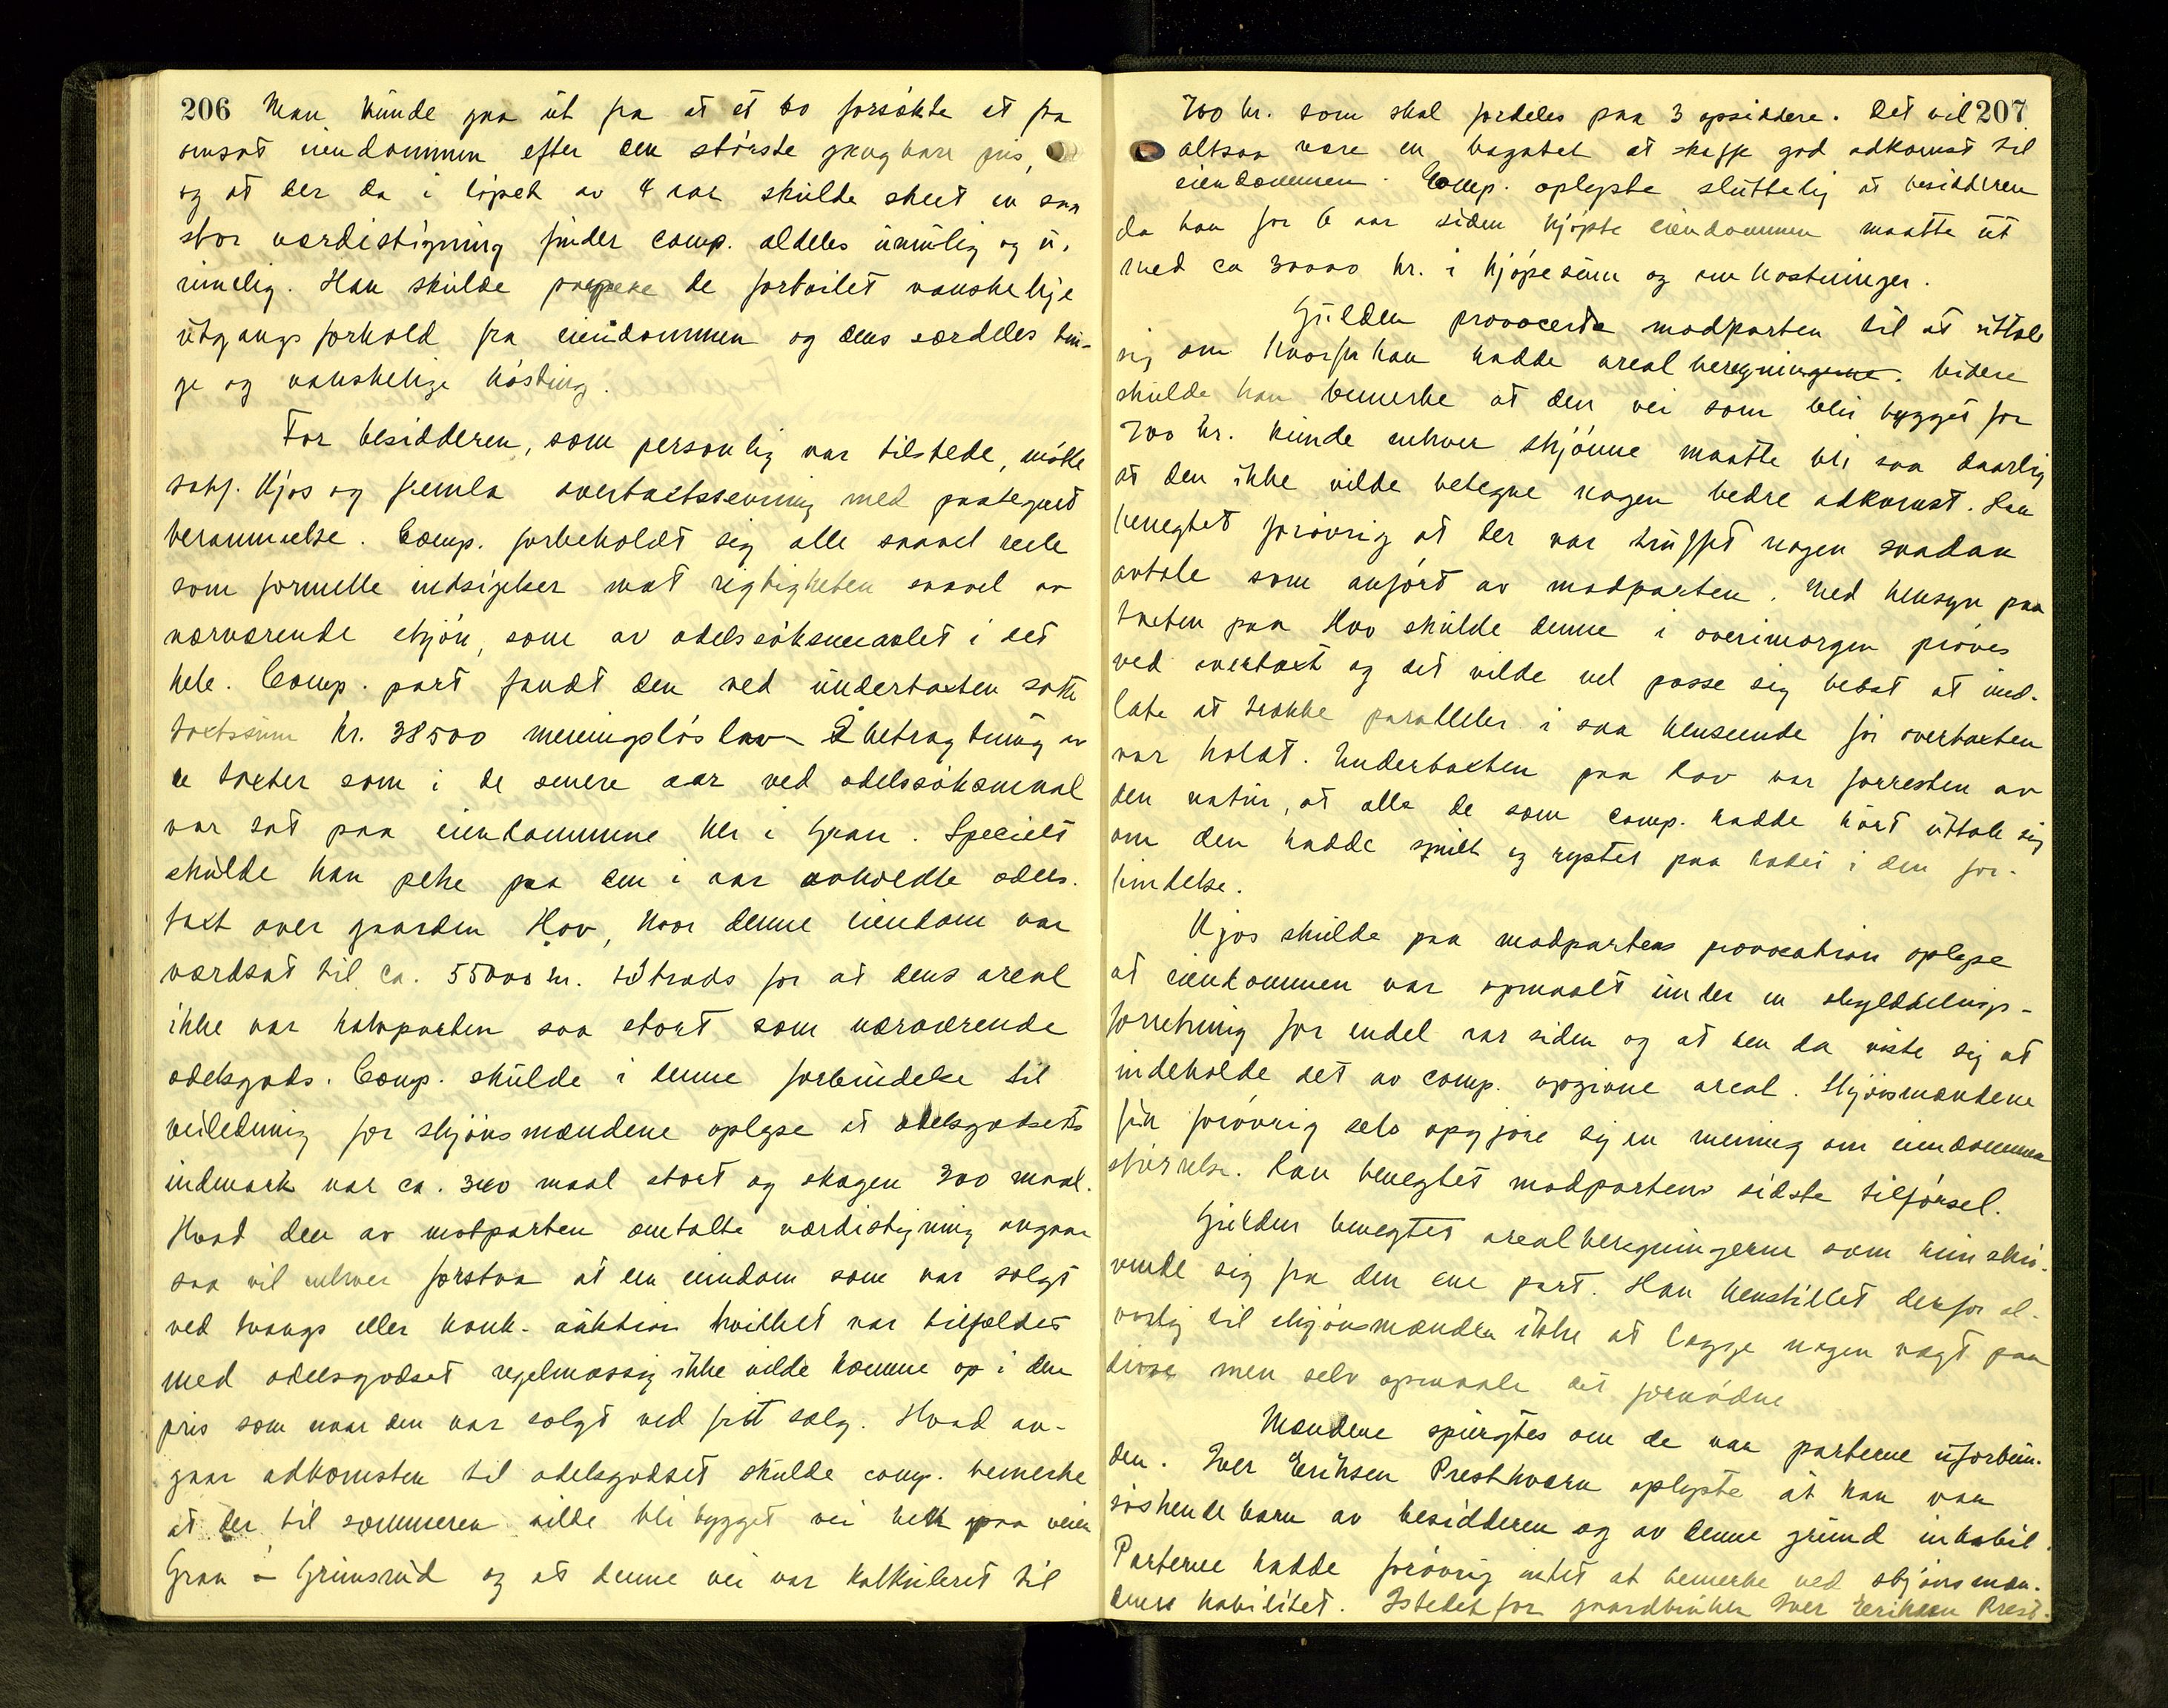 206 Man kunde gaa ut fra at et bo forsökte at faa
omsat eiendommen efter den störste gangbare pris,
og at der da i löpet av 4 aar skulde skeet en saa
stor værdistigning finder comp. aldeles umulig og u-
rimelig. Han skulde papeke de fortvilet vanskelige
utgangsforhold fra eiendommen og dens særdeles tun-
ge og vanskelige hösting.
For besidderen, som personlig var tilstede, mötte
sakf. Kjos og fremla overtakstssevning med paategnet
berammelse. Comp. forbeholdt sig alle saavel reele
som formelle indsigelser mot rigtigheten saavel av
nærværende skjön, som av odelssöksmaalet i det
hele. Comp. part fandt den ved undertaxten satte
taxtsum kr. 38500 meningslös lav I betragtning av
de taxter som i de senere aar ved odelssöksmaal
var sat paa eiendommene her i Gran. Specielt
skulde han peke paa den i aar avholdte odels-
taxt over gaarden Hov, hvor denne eiendom var
værdsat til ca. 55000 kr. tiltrods for at dens areal
ikke var halvparten saa stort som nærværende
odelsgods. Comp. skulde i denne forbindelse til
veiledning for skjönsmændene oplyse at odelsgodsets
indmark var ca. 340 maal stort og skogen 300 maal.
Hvad den av motparten omtalte værdistigning angaar
saa vil enhver forstaa at en eiendom som var solgt
ved tvangs eller konk. auktion hvilket var tilfældet
med odelsgodset regelmæssig ikke vilde komme op i den
pris som naar den var solgt ved fritt salg. Hvad an-
gaar adkomsten til odelsgodset skulde comp. bemerke
at der til sommeren vilde bli bygget vei helt paa veien
Gran - Grimsrud og at denne vei var kalkuleret til
700 kr. som skal fordeles paa 3 opsiddere. Det vil 207
altsaa være en bagatel at skaffe god adkomst til
eiendommen. Comp. oplyste sluttelig at besidderen
da han for 6 aar siden kjöpte eiendommen maatte ut
med ca 30000 kr. i kjöpesum og omkostninger.
Gulden provocerte modparten til at uttale
sig om hvorfra han hadde arealberegningerne. Videre
skulde han bemerke at den vei som blir bygget for
700 kr. kunde enhver skjönne maatte bli saa daarlig
at den ikke vilde betegne nogen bedre adkomst. Han
benegtet forövrig at der var truffet nogen saadan
avtale som anfört av modparten. Med hensyn paa
taxten paa Hov skulde denne i overimorgen pröves
ved overtaxt og det vilde vel passe sig bedst at und-
late at trække paralleller i saa henseende för overtaxten
var holdt. Undertaxten paa Hov var forresten av
den natur, at alle de som comp. hadde hört uttale sig
om den hadde smilt og rystet paa hodet i den for-
bindelse.
Kjos skulde paa modpartens provocation oplyse
at eiendommen var opmaalt under en skylddelings-
forretning for endel aar siden og at den da viste sig at
indeholde det av comp. opgivne areal. Skjönsmændene
fik forövrig selv opgjöre sig en mening om eiendommens
störrelse. Han benegtet modpartens sidste tilförsel.
Gulden benegtet arealberegningerne som kun skri-
vende sig fra den ene part. Han henstillet derfor al-
vorlig til skjönsmænden ikke at lægge nogen vægt paa
disse men selv opmaale det fornödne
Mændene spurgtes om de var parterne uforbun-
den. Iver Eriksen Prestkværn oplyste at han var
söskendebarn av besidderen og av denne grund inhabil.
Parterne hadde forövrig intet at bemerke ved skjönsmæn-
denes habilitet. Istedetfor gaardbruker Iver Eriksen Prest-